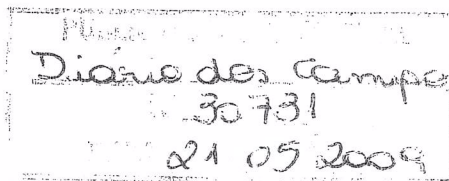 Diário dos Campos
30731
21 05 2009